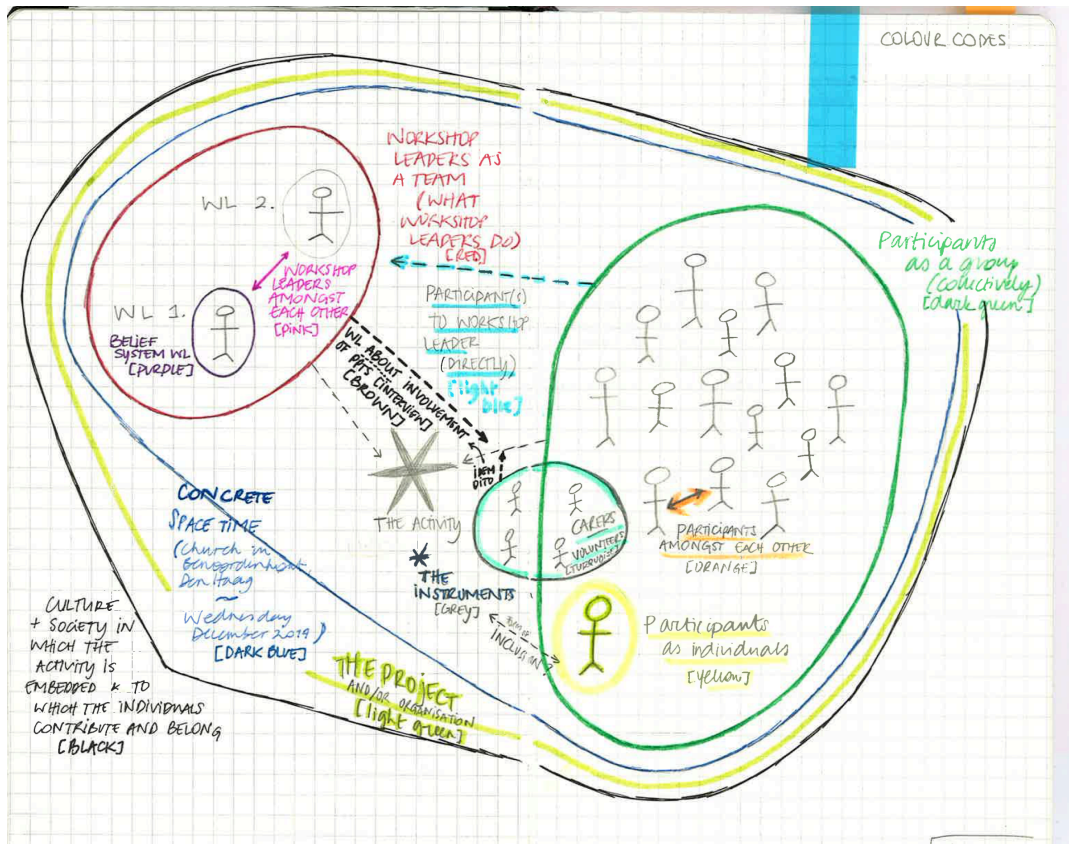 COLOUR CODES
WORKSHOP
LEADERS AS
A TEAM
(WHAT
WORKSHOP
LEADERS DO)
[RED]
WL 2.
WORKSHOP
LEADERS
AMONGST
EACH OTHER
[PINK]
WL 1.
BELIEF
SYSTEM WL
[PURPLE]
PARTICIPANT(S)
TO WORKSHOP
LEADER
(DIRECTLY)
[light
blue]
Participants
as a group
(collectively)
[dark green]
WL ABOUT INVOLVEMENT
OF PAtS [INTERVIEW]
[BROWN]
IDEM
DITO
THE ACTIVITY
CARERS
VOLUNTEERS
[TURQUOISE]
PARTICIPANTS
AMONGST EACH OTHER
[ORANGE]
CONCRETE
SPACE TIME
(Church in
Den Haag
~
Wednesday
December 2019)
[DARK BLUE]
THE
INSTRUMENTS
[GREY]
INCLUSION?
Participants
as individuals
[yellow]
CULTURE
+ SOCIETY IN
WHICH THE
ACTIVITY IS
EMBEDDED & TO
WHICH THE INDIVIDUALS
CONTRIBUTE AND BELONG
[BLACK]
THE PROJECT
AND/OR ORGANISATION
[light green]